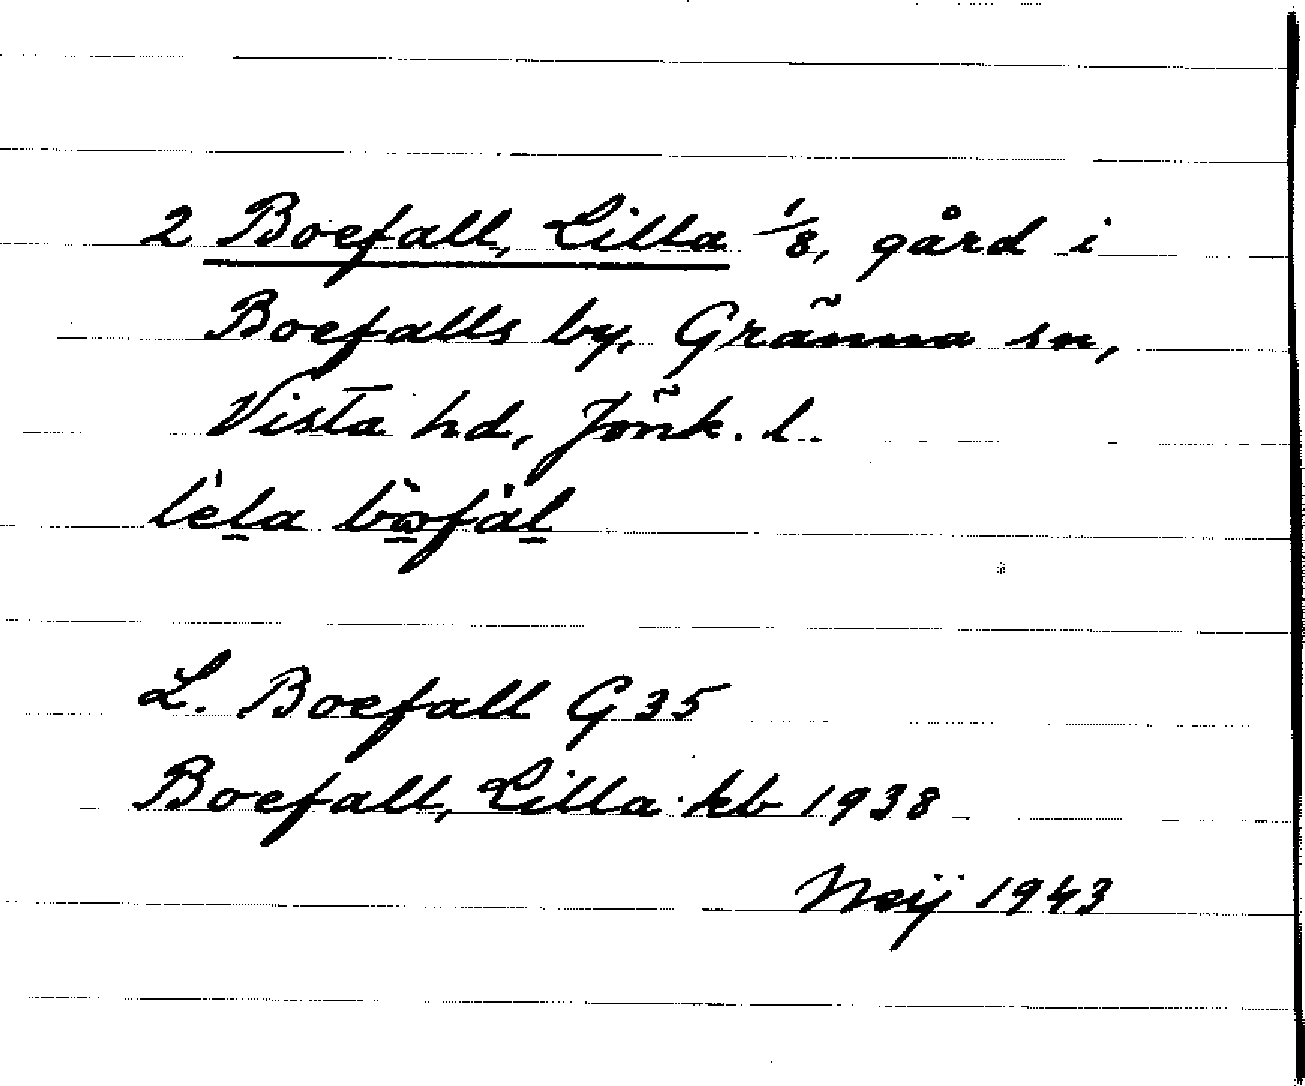 2 Boefall, Lilla 1/8, gård i
Boefalls by, Gränna sn,
Vista hd, Jönk. l.
L. Boefall G 35
Boefall, Lilla kb 1938
Neij 1943